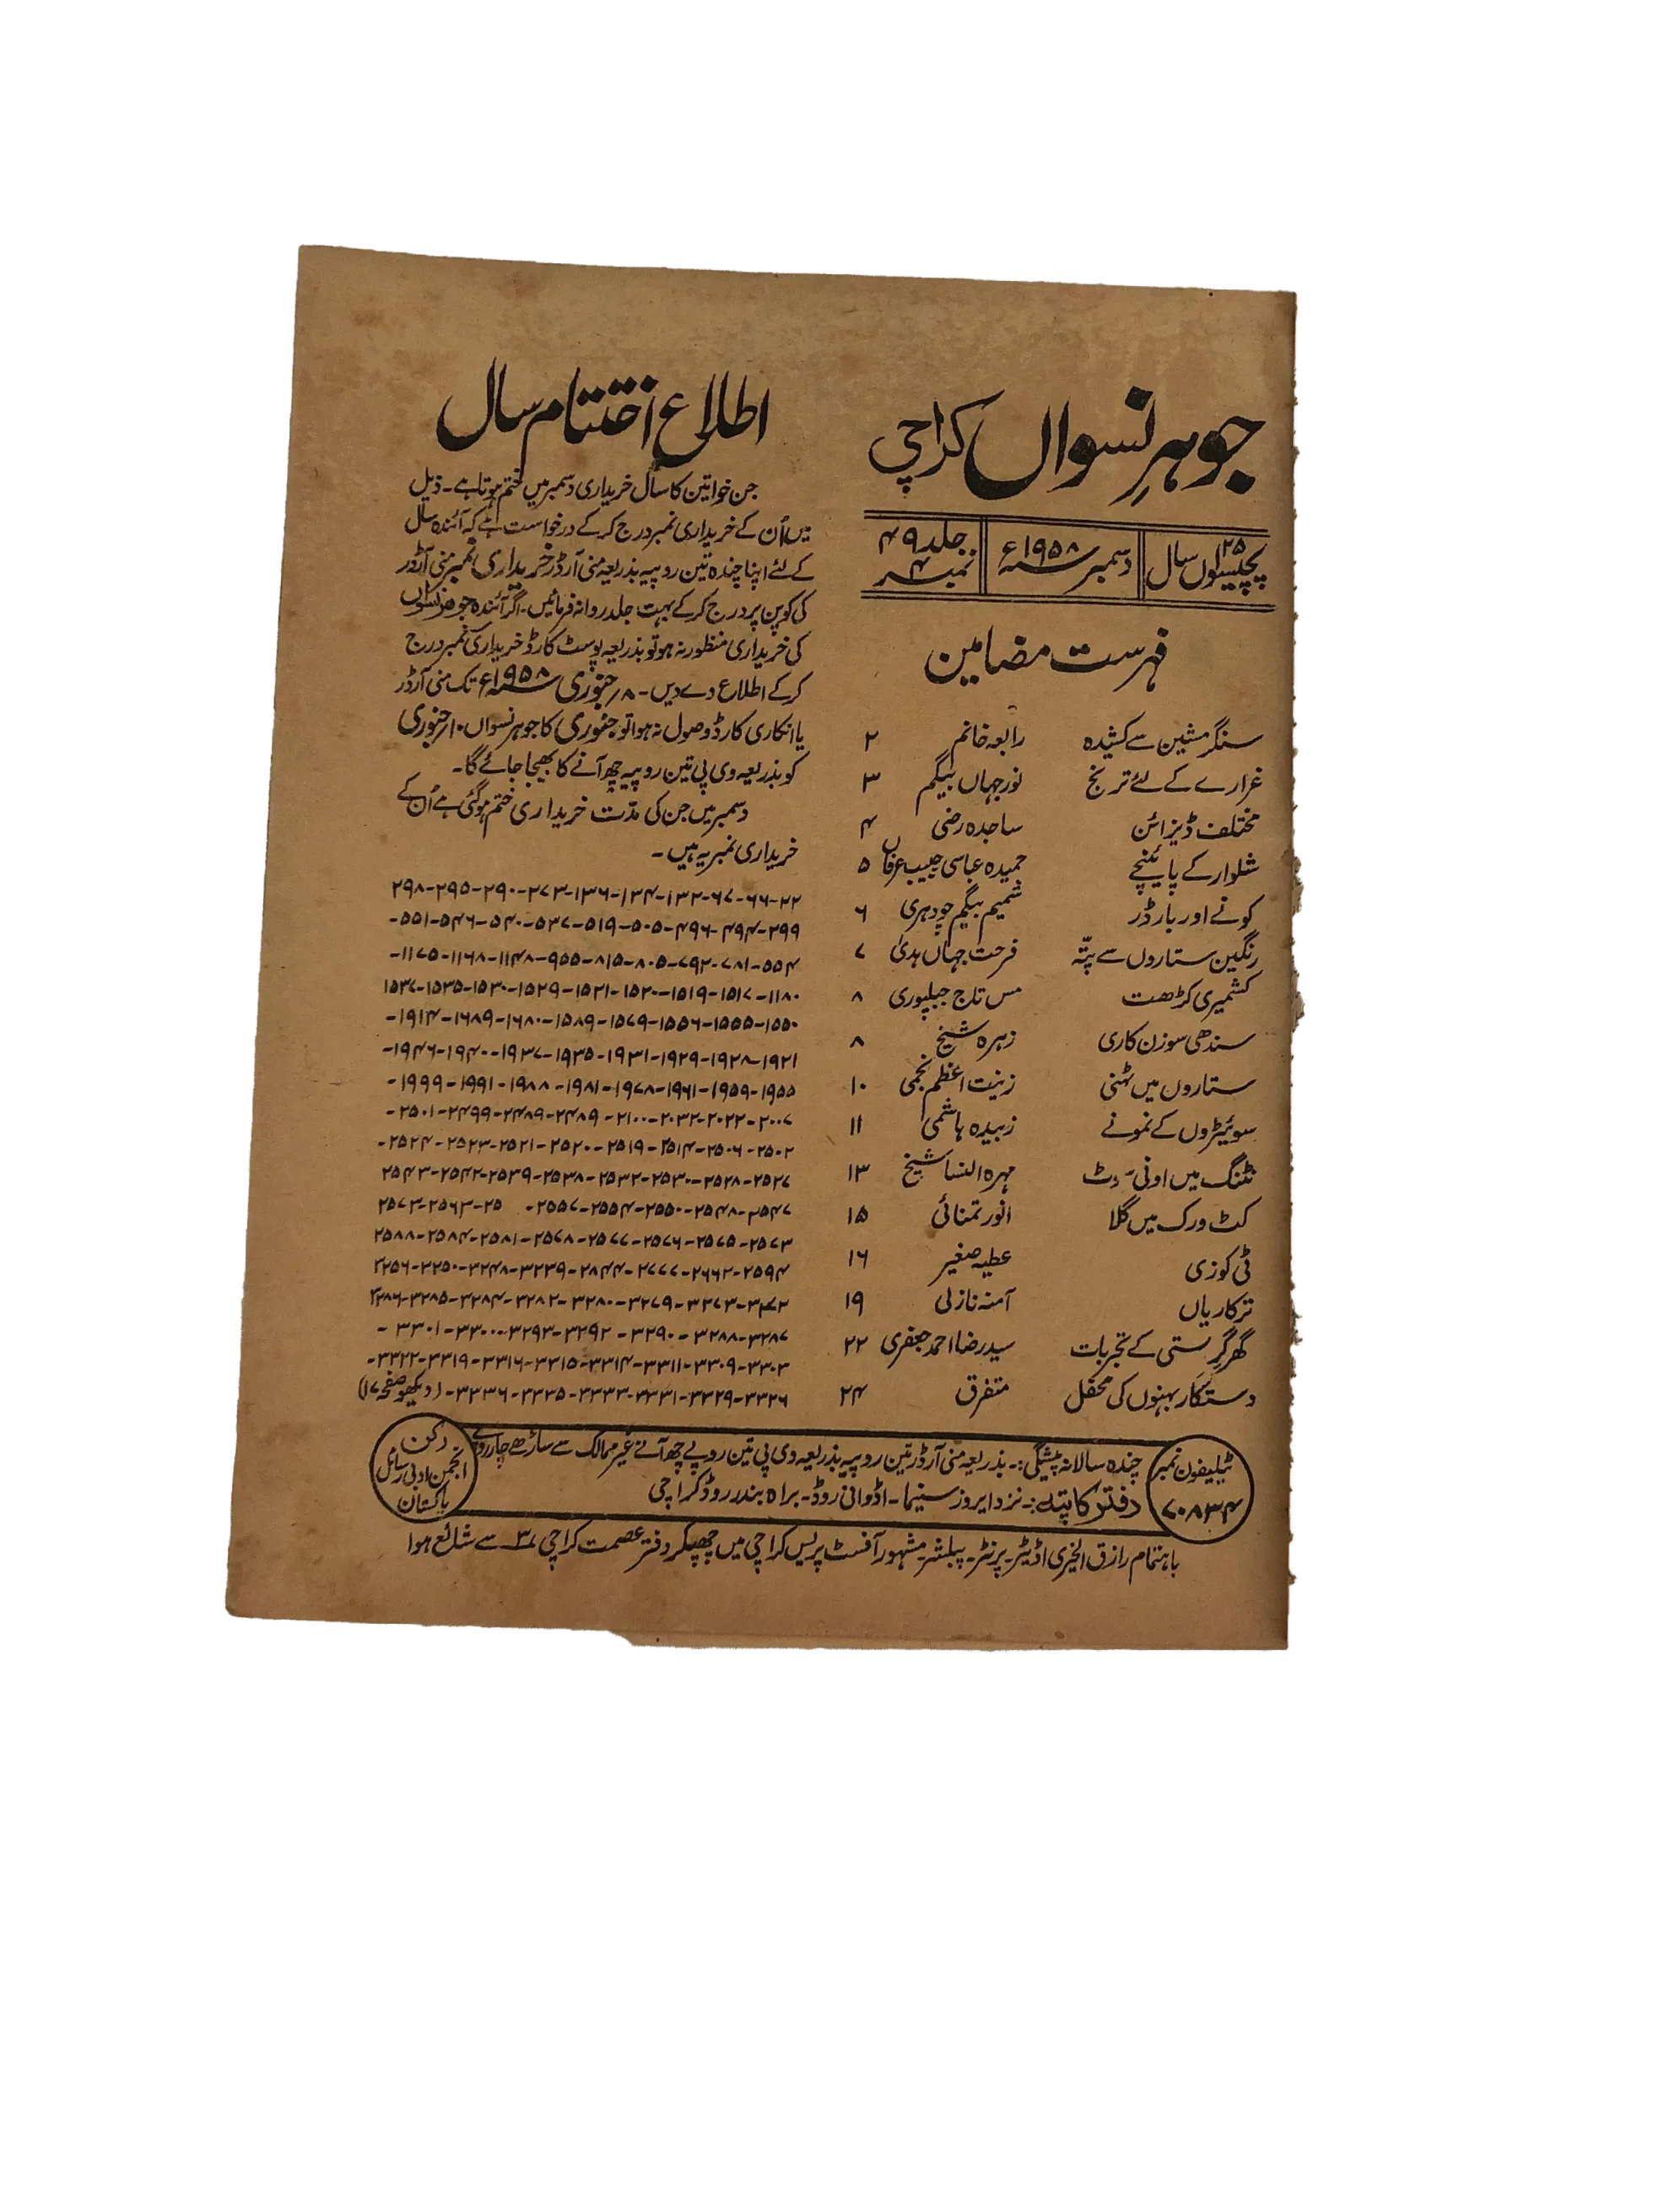 جوہرِ نسواں کراچی
۲۵ پچیسواں سال
دسمبر ۱۹۵۸ء
جلد ۴۹
نمبر ۴
فہرست مضامین
سنگر مشین سے کشیدہ رابعہ خانم ۲
غرارے کے لئے ترنج نور جہاں بیگم ۳
مختلف ڈیزائن ساجدہ رضی ۴
شلوار کے پائینچے حمیدہ عباسی حبیب عرفاں ۵
کونے اور بارڈر شمیم بیگم چودہری ۶
رنگین ستاروں سے پتّہ فرحت جہاں ہدیٰ ۷
کشمیری کڑھت مس تاج جبلپوری ۸
سندھی سوزن کاری زہرہ شیخ ۸
ستاروں میں ٹہنی زینت اعظم نجمی ۱۰
سوئیٹروں کے نمونے زبیدہ ہاشمی ۱۱
نٹنگ میں اونی مہرہ النسا شیخ ۱۳
کٹ ورک میں گلا انور تمنائی ۱۵
ٹی کوزی عطیہ صغیر ۱۶
ترکاریاں آمنہ نازلی ۱۹
گھر گرستی کے تجربات سید رضا احمد جعفری ۲۲
دستکار بہنوں کی محفل متفرق ۲۴
اطلاع اختتام سال
جن خواتین کا سال خریداری دسمبر میں ختم ہوتا ہے۔ ذیل
میں اُن کے خریداری نمبر درج کرکے درخواست ہے کہ آئندہ سال
کے لئے اپنا چندہ تین روپیہ بذریعہ منی آرڈر خریداری نمبر منی آرڈر
کی کوپن پر درج کرکے بہت جلد روانہ فرمائیں۔ اگر آئندہ جوہر نسواں
کی خریداری منظور نہ ہو تو بذریعہ پوسٹ کارڈ خریداری نمبر درج
کرکے اطلاع دے دیں۔ ۸ر جنوری ۱۹۵۸ء تک منی آرڈر
یا انکاری کارڈ وصول نہ ہوا تو جنوری کا جوہر نسواں ۱۰ر جنوری
کو بذریعہ وی پی تین روپیہ چھ آنے کا بھیجا جائے گا۔
دسمبر میں جن کی مدّت خریداری ختم ہوگئی ہے اُن کے
خریداری نمبر یہ ہیں۔
۲۲-۶۶-۶۷-۱۳۲-۱۳۴-۱۳۶-۲۷۳-۲۹۰-۲۹۵-۲۹۸
۲۹۹-۴۹۴-۴۹۶-۵۰۵-۵۱۹-۵۳۷-۵۴۰-۵۴۶-۵۵۱-
۵۵۴-۷۸۱-۷۹۲-۸۰۵-۸۱۵-۹۵۵-۱۱۴۸-۱۱۶۸-۱۱۷۵-
۱۱۸۰-۱۵۱۷-۱۵۱۹-۱۵۲۰-۱۵۲۱-۱۵۲۹-۱۵۳۰-۱۵۳۵-۱۵۳۷
۱۵۵۰-۱۵۵۵-۱۵۵۶-۱۵۷۹-۱۵۸۹-۱۶۸۰-۱۶۸۹-۱۹۱۴-
۱۹۲۱-۱۹۲۸-۱۹۲۹-۱۹۳۱-۱۹۳۵-۱۹۳۷-۱۹۴۰-۱۹۴۶-
۱۹۵۵-۱۹۵۹-۱۹۶۱-۱۹۷۸-۱۹۸۱-۱۹۸۸-۱۹۹۱-۱۹۹۹-
۲۰۰۷-۲۰۲۲-۲۰۳۲-۲۱۰۰-۲۴۸۹-۲۴۸۹-۲۴۹۹-۲۵۰۱-
۲۵۰۲-۲۵۰۶-۲۵۱۴-۲۵۱۹-۲۵۲۰-۲۵۲۱-۲۵۲۳-۲۵۲۴-
۲۵۲۷-۲۵۲۸-۲۵۳۰-۲۵۳۲-۲۵۳۸-۲۵۳۹-۲۵۴۲-۲۵۴۳
۲۵۴۷-۲۵۴۸-۲۵۵۰-۲۵۵۴-۲۵۵۷- ۲۵-۲۵۶۳-۲۵۷۳
۲۵۷۳-۲۵۷۵-۲۵۷۶-۲۵۷۷-۲۵۷۸-۲۵۸۱-۲۵۸۴-۲۵۸۸
۲۵۹۴-۲۶۶۲-۲۷۷۷-۲۸۴۴-۳۲۳۹-۳۲۴۸-۳۲۵۰-۳۲۵۶
۳۲۷۲-۳۲۷۳-۳۲۷۹-۳۲۸۰-۳۲۸۲-۳۲۸۴-۳۲۸۵-۳۲۸۶
۳۲۸۷-۳۲۸۸-۳۲۹۰-۳۲۹۲-۳۲۹۳-۳۳۰۰-۳۳۰۱-
۳۳۰۳-۳۳۰۹-۳۳۱۱-۳۳۱۴-۳۳۱۵-۳۳۱۶-۳۳۱۹-۳۳۲۲-
۳۳۲۶-۳۳۲۹-۳۳۳۱-۳۳۳۳-۳۳۳۵-۳۳۳۶-(دیکھو صفحہ ۱۷)
ٹیلیفون نمبر
۷۰۸۳۴
چندہ سالانہ پیشگی:۔ بذریعہ منی آرڈر تین روپیہ بذریعہ وی پی تین روپے چھ آنے غیر ممالک سے ساڑھے چار روپے
دفتر کا پتہ:۔ نزد ایروز سنیما۔ اڈوانی روڈ۔ براہ بندر روڈ کراچی
رُکن
انجمن ادبی رسائل
پاکستان
باہتمام رازق الخیری اڈیٹر۔ پرنٹر۔ پبلشر۔ مشہور آفسٹ پریس کراچی میں چھپکر دفتر عصمت کراچی ۳ سے شائع ہوا